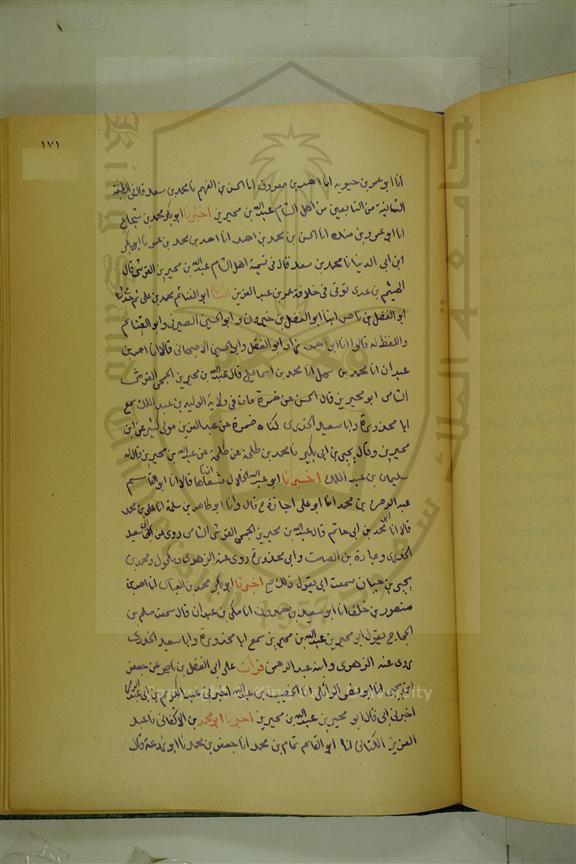 ١٧١
انا ابو عمر بن حيويه انا احمد بن معروف انا الحسن بن الفهم نا محمد بن سعد قال في الطبقة
الثانية من التابعين من اهل الشام عبد الله بن محيريز اخبرنا ابو بكر محمد بن شجاع
انا ابو عمرو بن منده انا الحسن بن محمد بن احمد انا احمد بن محمد بن عمر نا ابو بكر
ابن ابي الدنيا نا محمد بن سعد قال في تسمية اهل الشام عبد الله بن محيريز القرشي قال
الهيثم بن عدي توفي في خلافة عمر بن عبد العزيز انبأنا ابو الغنائم محمد بن علي ثم حدثنا
ابو الفضل بن ناصر انبا ابو الفضل بن خيرون وابو الحسين الصيرفي وابو الغنائم
واللفظ له قالوا انا ابو احمد زاد ابو الفضل وابو الحسين الاصبهاني قالا انا احمد بن
عبدان انا محمد بن سهل انا محمد بن اسماعيل قال عبد الله بن محيريز الجمحي القرشي
الشامي ابو محيريز قال الحسن عن ضمرة مات في ولاية الوليد بن عبد الملك سمع
ابا محذورة وابا سعيد الخدري كناه ضمرة عن عبد العزيز مولى كثير عن ابن
محيريز وقال يحيى بن ابي بكير نا محمد بن طلحة عن طلحة عن عبد الله بن محيريز قال له
سليمان بن عبد الملك اخبرنا ابو عبد الله الخلال شفاها قالا انا ابو القاسم
عبد الرحمن بن محمد انا ابو علي اجازة ح قال وانا ابو طاهر بن سلمة انا علي بن محمد
قالا انا محمد بن ابي حاتم قال عبد الله بن محيريز الجمحي القرشي الشامي روى عن ابي سعيد
الخدري وعبادة بن الصامت وابي محذورة روى عنه الزهري ومكحول ومحمد بن
يحيى بن حبان سمعت ابي يقول ذلك اخبرنا ابو بكر محمد بن العباس انا احمد بن
منصور بن خلف انا ابو سعيد بن حمدون انا مكي بن عبدان قال سمعت مسلم بن
الحجاج يقول ابو محيريز عبد الله بن محيريز سمع ابا محذورة وابا سعيد الخدري
روى عنه الزهري وابنه عبد الرحمن قرأت على ابي الفضل بن ناصر عن جعفر
ابن يحيى انا ابو نصر الوائلي انا الخصيب بن عبد الله اخبرني عبد الكريم بن ابي عبد الرحمن
اخبرني ابي قال ابو محيريز عبد الله بن محيريز اخبرنا ابو محمد بن الاكفاني نا عبد
العزيز الكتاني انا ابو القاسم تمام بن محمد انا جعفر بن محمد نا ابو زرعة قال